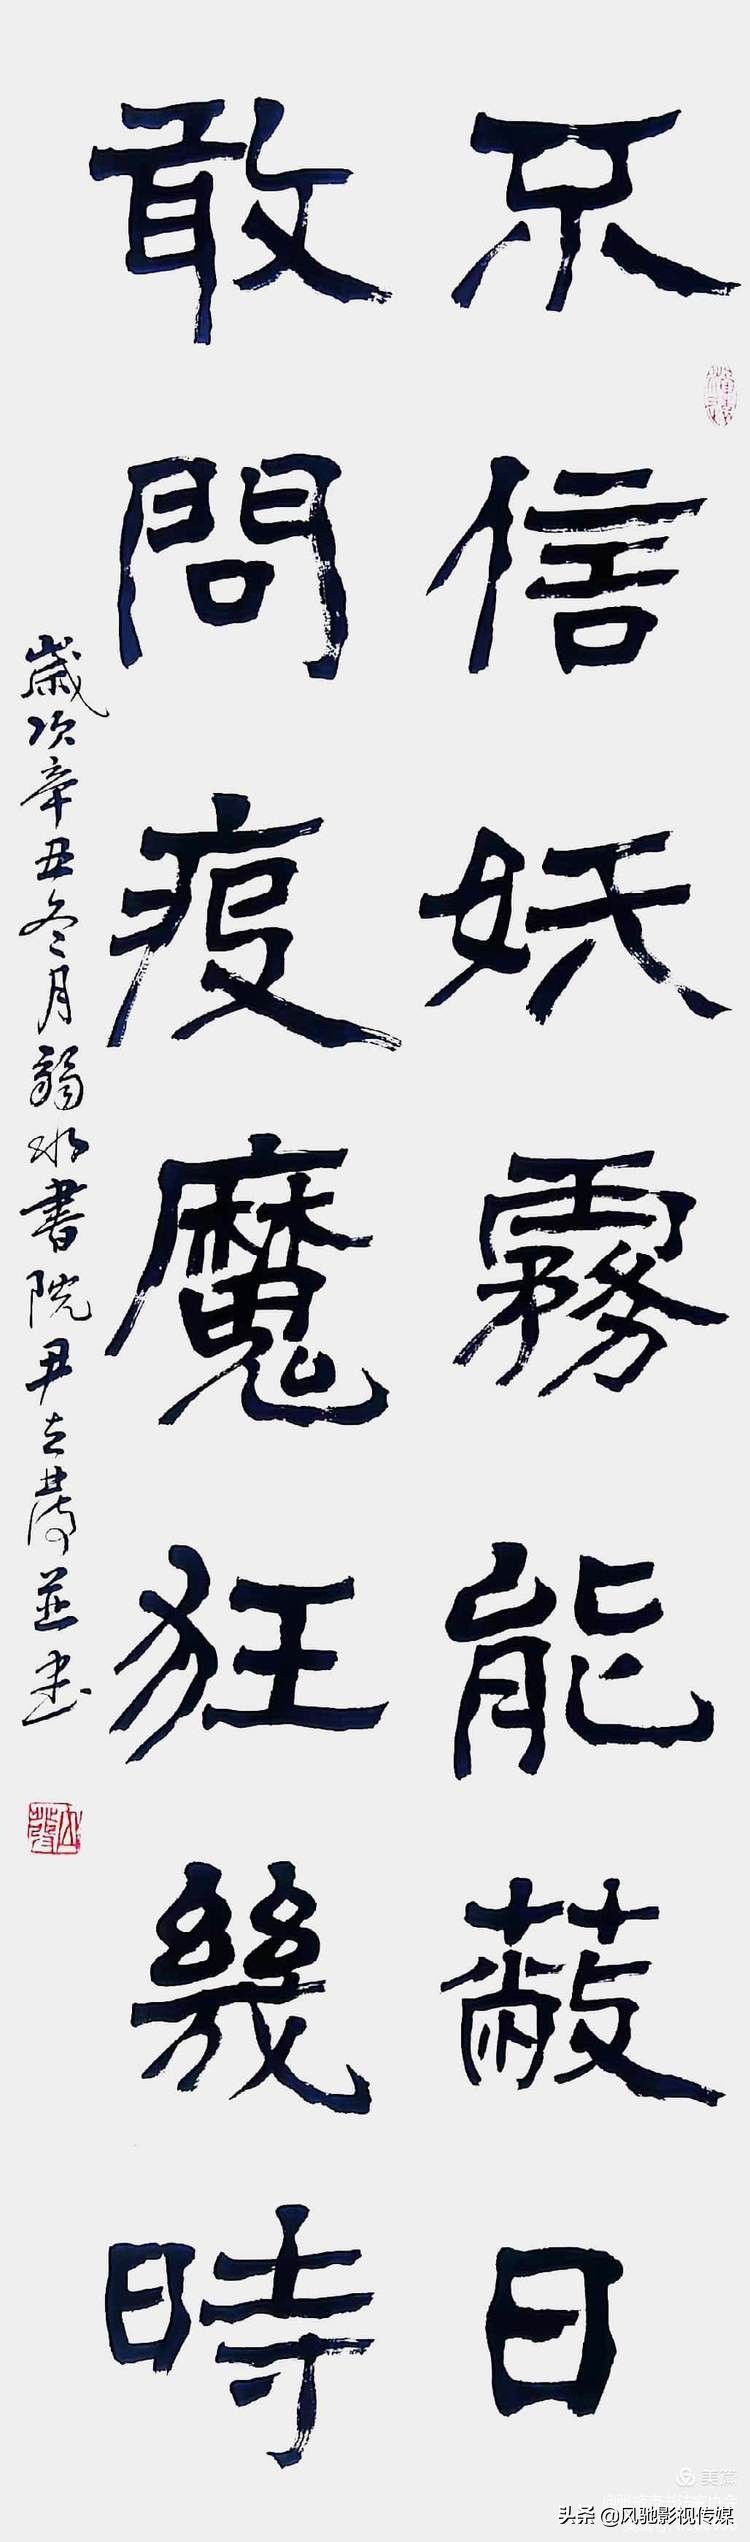 不信妖霧能蔽日
敢問疫魔狂幾時
歲次辛丑冬月弱水書院尹立
並书
美篇
头条 @风驰影视传媒